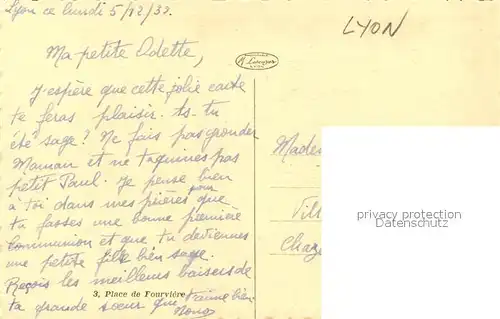 Lyon ce lundi 5/12/32.
LYON
Ma petite Odette,
J'espère que cette jolie carte
te feras plaisir. As-tu
été sage? Ne fais pas gronder
Maman et ne taquines pas
petit Paul. Je pense bien
à toi dans mes prières pour
que tu fasses une bonne première
Communion et que tu deviennes
une petite fille bien sage.
Reçois les meilleurs baisers de
ta grande sœur qui t'aime bien.
3, Place de Fourvière
Made
Vill
Chaz
privacy protection
www.ansichtskarten-center.de